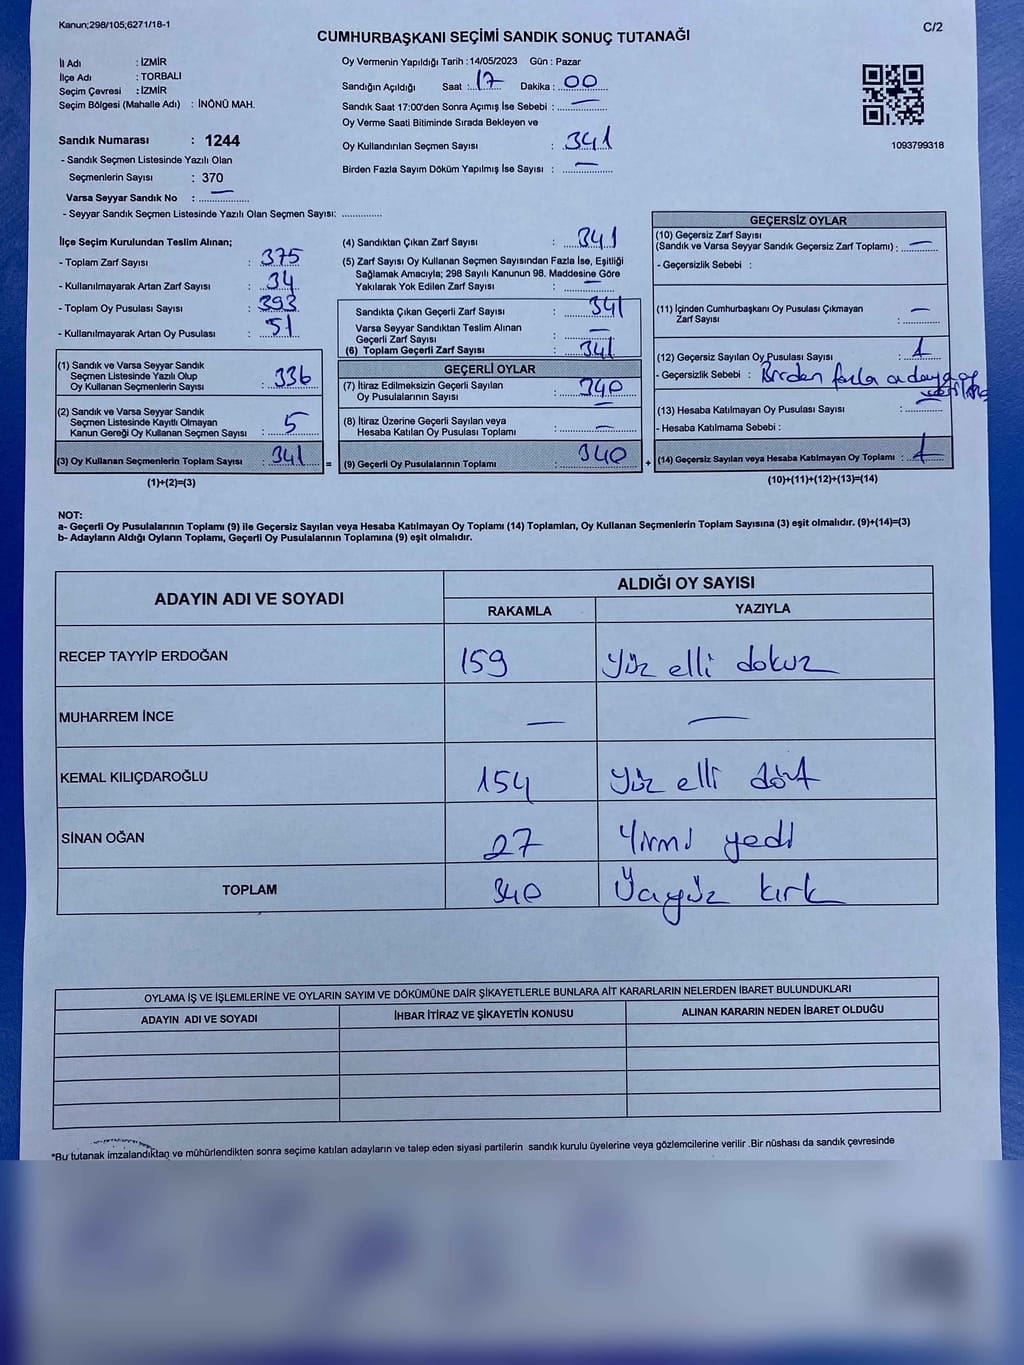 Kanun;298/105;6271/18-1
C/2
CUMHURBAŞKANI SEÇİMİ SANDIK SONUÇ TUTANAĞI
İl Adı : İZMİR
İlçe Adı : TORBALI
Seçim Çevresi : İZMİR
Seçim Bölgesi (Mahalle Adı) : İNÖNÜ MAH.
Sandık Numarası : 1244
- Sandık Seçmen Listesinde Yazılı Olan
Seçmenlerin Sayısı : 370
Varsa Seyyar Sandık No : —
- Seyyar Sandık Seçmen Listesinde Yazılı Olan Seçmen Sayısı: ..............
Oy Vermenin Yapıldığı Tarih :14/05/2023 Gün : Pazar
Sandığın Açıldığı Saat : 17 Dakika : 00
Sandık Saat 17:00'den Sonra Açımış İse Sebebi : —
Oy Verme Saati Bitiminde Sırada Bekleyen ve
Oy Kullandırılan Seçmen Sayısı : 341
Birden Fazla Sayım Döküm Yapılmış İse Sayısı : —
1093799318
İlçe Seçim Kurulundan Teslim Alınan;
- Toplam Zarf Sayısı : 375
- Kullanılmayarak Artan Zarf Sayısı : 34
- Toplam Oy Pusulası Sayısı : 393
- Kullanılmayarak Artan Oy Pusulası : 51
(1) Sandık ve Varsa Seyyar Sandık
Seçmen Listesinde Yazılı Olup
Oy Kullanan Seçmenlerin Sayısı : 336
(2) Sandık ve Varsa Seyyar Sandık
Seçmen Listesinde Kayıtlı Olmayan
Kanun Gereği Oy Kullanan Seçmen Sayısı : 5
(3) Oy Kullanan Seçmenlerin Toplam Sayısı : 341 =
(1)+(2)=(3)
(4) Sandıktan Çıkan Zarf Sayısı : 341
(5) Zarf Sayısı Oy Kullanan Seçmen Sayısından Fazla İse, Eşitliği
Sağlamak Amacıyla; 298 Sayılı Kanunun 98. Maddesine Göre
Yakılarak Yok Edilen Zarf Sayısı : —
Sandıkta Çıkan Geçerli Zarf Sayısı : 341
Varsa Seyyar Sandıktan Teslim Alınan
Geçerli Zarf Sayısı : —
(6) Toplam Geçerli Zarf Sayısı : 341
GEÇERLİ OYLAR
(7) İtiraz Edilmeksizin Geçerli Sayılan
Oy Pusulalarının Sayısı : 340
(8) İtiraz Üzerine Geçerli Sayılan veya
Hesaba Katılan Oy Pusulası Toplamı : —
(9) Geçerli Oy Pusulalarının Toplamı : 340 +
GEÇERSİZ OYLAR
(10) Geçersiz Zarf Sayısı
(Sandık ve Varsa Seyyar Sandık Geçersiz Zarf Toplamı) : —
- Geçersizlik Sebebi :
(11) İçinden Cumhurbaşkanı Oy Pusulası Çıkmayan
Zarf Sayısı : —
(12) Geçersiz Sayılan Oy Pusulası Sayısı : 1
- Geçersizlik Sebebi : Birden fazla adaya oy
(13) Hesaba Katılmayan Oy Pusulası Sayısı : —
- Hesaba Katılmama Sebebi :
(14) Geçersiz Sayılan veya Hesaba Katılmayan Oy Toplamı : 1
(10)+(11)+(12)+(13)=(14)
NOT:
a- Geçerli Oy Pusulalarının Toplamı (9) ile Geçersiz Sayılan veya Hesaba Katılmayan Oy Toplamı (14) Toplamları, Oy Kullanan Seçmenlerin Toplam Sayısına (3) eşit olmalıdır. (9)+(14)=(3)
b- Adayların Aldığı Oyların Toplamı, Geçerli Oy Pusulalarının Toplamına (9) eşit olmalıdır.
ADAYIN ADI VE SOYADI ALDIĞI OY SAYISI
RAKAMLA YAZIYLA
RECEP TAYYİP ERDOĞAN 159 Yüz elli dokuz
MUHARREM İNCE — —
KEMAL KILIÇDAROĞLU 154 Yüz elli dört
SİNAN OĞAN 27 Yirmi yedi
TOPLAM 340 Üçyüz kırk
OYLAMA İŞ VE İŞLEMLERİNE VE OYLARIN SAYIM VE DÖKÜMÜNE DAİR ŞİKAYETLERLE BUNLARA AİT KARARLARIN NELERDEN İBARET BULUNDUKLARI
ADAYIN ADI VE SOYADI İHBAR İTİRAZ VE ŞİKAYETİN KONUSU ALINAN KARARIN NEDEN İBARET OLDUĞU
*Bu tutanak imzalandıktan ve mühürlendikten sonra seçime katılan adayların ve talep eden siyasi partilerin sandık kurulu üyelerine veya gözlemcilerine verilir .Bir nüshası da sandık çevresinde